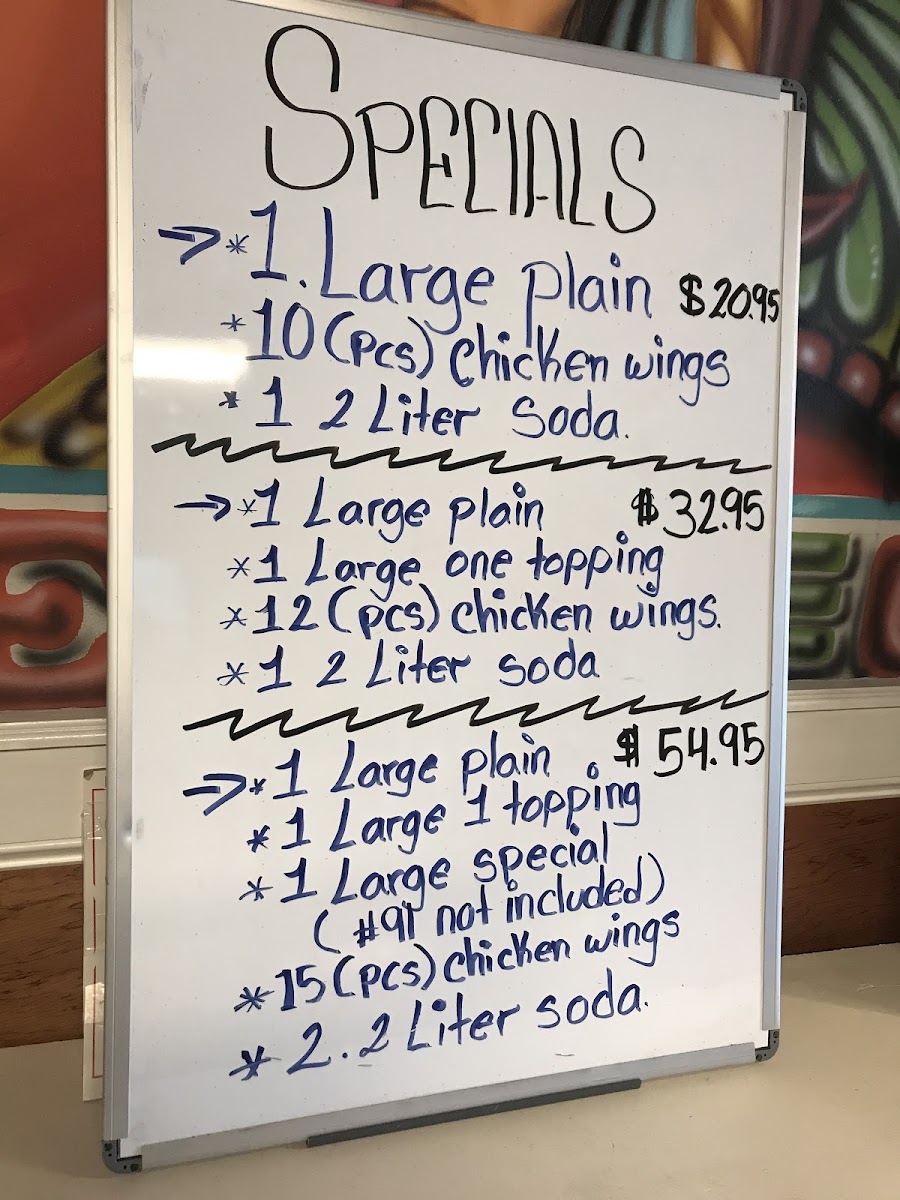 SPECIALS
→ *1. Large plain $20.95
*10 (pcs) chicken wings
*1 2 Liter soda.
→ *1 Large plain $32.95
*1 Large one topping
*12 (pcs) chicken wings.
*1 2 Liter soda
→ *1 Large plain $54.95
*1 Large 1 topping
*1 Large special
(#91 not included)
*15 (pcs) chicken wings
*2.2 Liter soda.